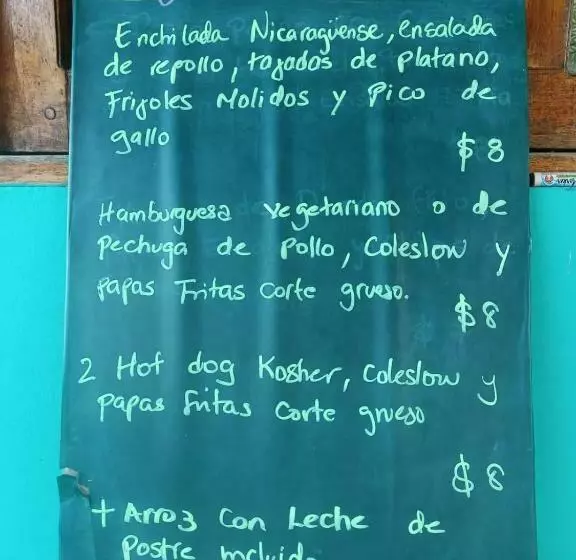 Enchilada Nicaragüense, ensalada
de repollo, tajadas de platano,
Frijoles Molidos y Pico de
gallo
$8
Hamburguesa vegetariano o de
Pechuga de Pollo, Coleslow y
papas Fritas Corte grueso.
$8
2 Hot dog Kosher, Coleslow y
papas fritas Corte grueso
$8
+ Arroz Con Leche de
Postre